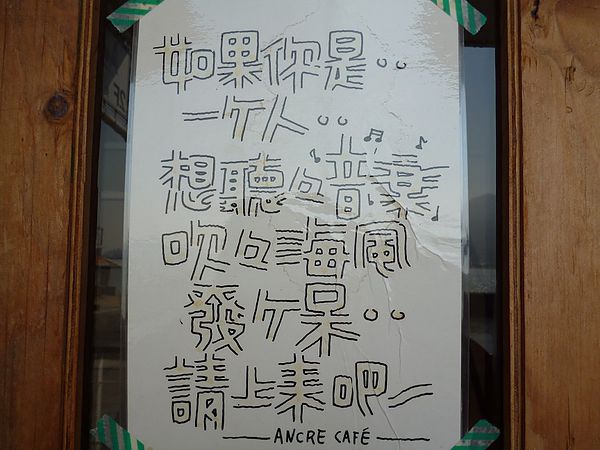 如果你是..
一ケ人..
想聽々音樂
吹々海風
發ケ呆..
請上來吧~
— ANCRE CAFÉ —